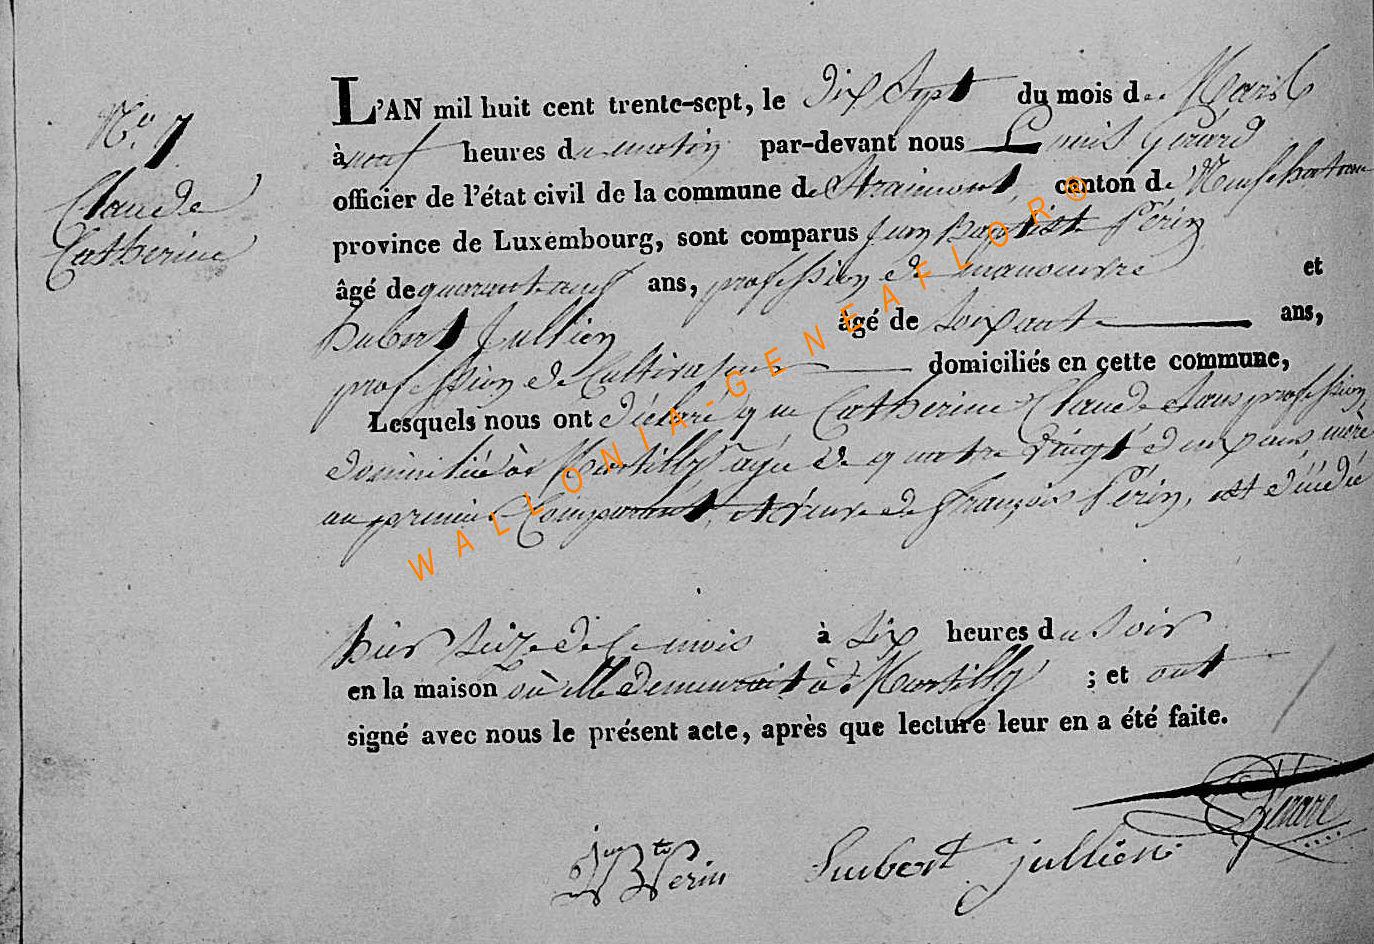 N° 7
Claude
Catherine
L'AN mil huit cent trente-sept, le dix Sept du mois de Mars
à neuf heures du matin par-devant nous Louis Gérard
officier de l'état civil de la commune de Straimont canton de Neufchateau
province de Luxembourg, sont comparus Jean Baptiste Périn
âgé de quarante neuf ans, profession de manoeuvre et
hubert Jullien âgé de Soixante ans,
profession de Cultivateur domiciliés en cette commune,
Lesquels nous ont déclaré que Catherine Claude Sans profession
domiciliée à Martilly agée de quatre vingt deux ans mère
au premier Comparant, et veuve de françois Périn, est décédée
hier Seize de Ce mois à Six heures du Soir
en la maison où elle demeurait à Martilly ; et ont
signé avec nous le présent acte, après que lecture leur en a été faite.
jean bte
Perin hubert jullien LGerard
WALLONIA-GENEAFLOR®